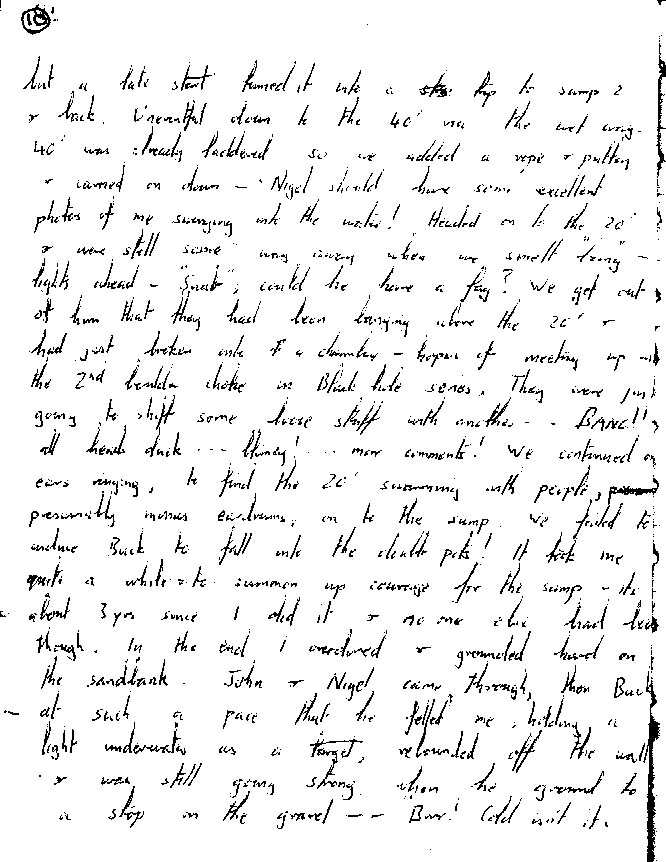 18
but a late start turned it into a trip to sump 2
& back. Uneventful down to the 40' via the wet way.
40' was already laddered so we added a rope & pulley
& carried on down — Nigel should have some excellent
photos of me swinging into the water! Headed on to the 20'
& were still some way away when we smelt "bang" -
lights ahead - "Snab", could he have a fag? We get out
of him that they had been banging above the 20' &
had just broken into a chamber - hopes of meeting up
the 2nd boulder choke in Black hole series. They were just
going to shift some loose stuff with another - - BANG!!
all heads duck --- Blimey! ... more comments! We continued on
ears ringing, to find the 20' swarming with people,
presumably minus eardrums, on to the sump. We failed to
induce Buck to fall into the double pots! It took me
quite a while to summon up courage for the sump - its
about 3 yrs since I did it & no one else had been
though. In the end I overdived & grounded hard on
the sandbank. John & Nigel came through, then Buck
at such a pace that he felled me, holding a
light underwater as a target, rebounded off the wall
& was still going strong when he ground to
a stop on the gravel -- Brr! Cold isn't it.